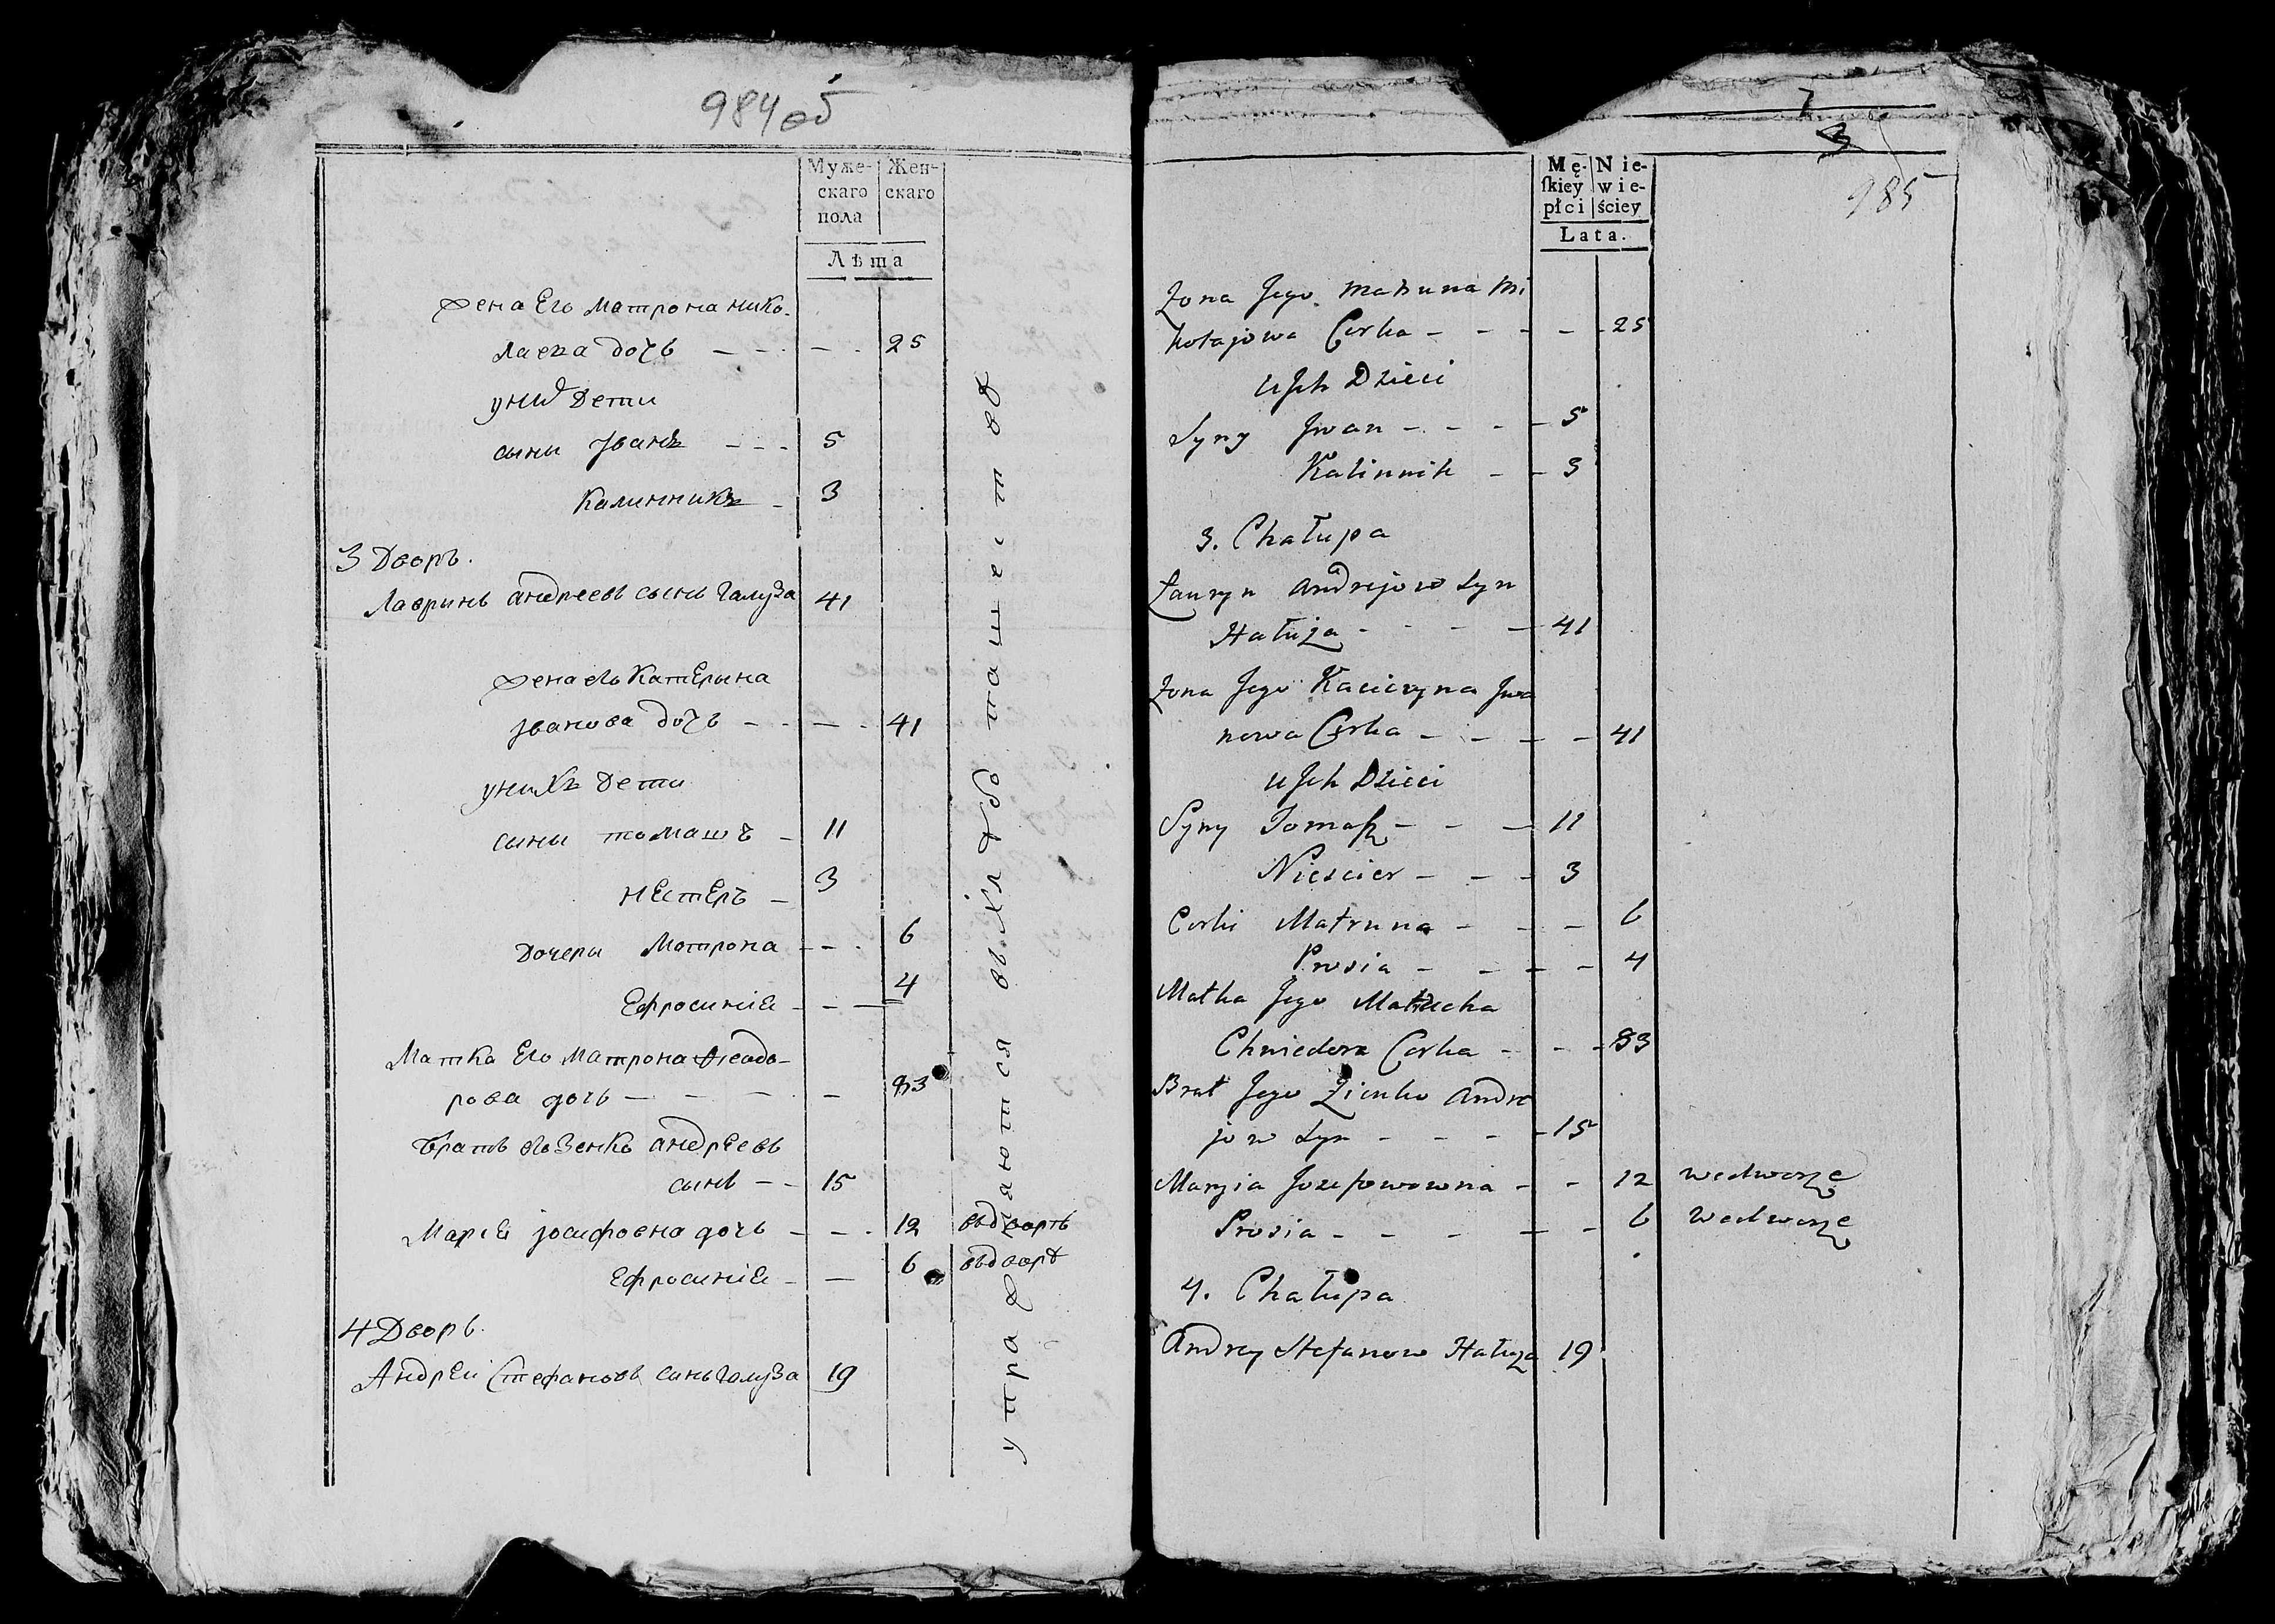 984 об
Муже-
скаго
пола
Жен-
скаго
Лѣта
Жена Его Матрона нико-
лаева дочь — — — 25
у них Дети
сыны Іванъ — — 5
Калинникъ — 3
3 Дворъ.
Лавринъ андреевъ сынъ Галуза 41
Жена его Катерына
Іванова дочь — — — 41
у нихъ Дети
сыны томашъ — 11
нестеръ — 3
Дочери Матрона — — 6
Ефросиніа — — 4
Матка Его Матрона Феодо-
рова дочь — — — — 83
братъ его Зенко андреевъ
сынъ — — 15
Маріа іосифовна дочь — — — 12 въдворѣ
Ефросиніа — — 6 въдворѣ
4 Дворъ.
Андреи Стефановъ синъ Галуза 19
7
3
985
Mę-
ſkiey
płci
Nie-
wie-
ściey
Lata.
Żona Jego Matruna Mi
kołajowa Corka — — — — 25
u Jch Dzieci
Syny Jwan — — — 5
Kalinnik — — 3
3. Chałupa
Łauryn Andrejow Syn
Hałuza — — — 41
Żona Jego Kacieryna Jwa
nowa Corka — — — — 41
u Jch Dzieci
Syny Tomaſz — — — 11
Niescier — — — 3
Corki Matruna — — — 6
Prosia — — — — 4
Matka Jego Matrucha
Chwiedora Corka — — — 83
Brat Jego Zienko Andre
jow Syn — — — — 15
Maryia Jozefowowna — — 12 wedworze
Prosia — — — — — 6 wedworze
4. Chałupa
Andrey Stefanow Hałuza 19